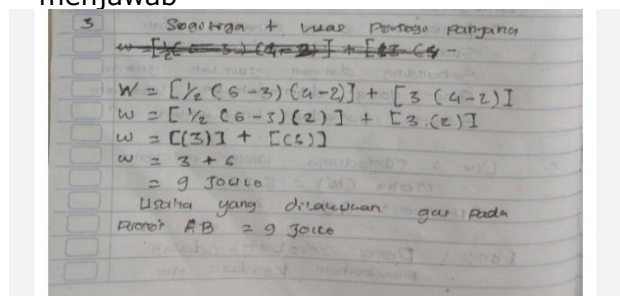 menjawab
3 Segitiga + Luas Persegi Panjang
W = [1/2 (6-3) (4-2)] + [3 (4-2)]
W = [1/2 (6-3) (2)] + [3.(2)]
W = [(3)] + [(6)]
W = 3 + 6
= 9 Joule.
Usaha yang dilakukan gas pada
Proses AB = 9 Joule